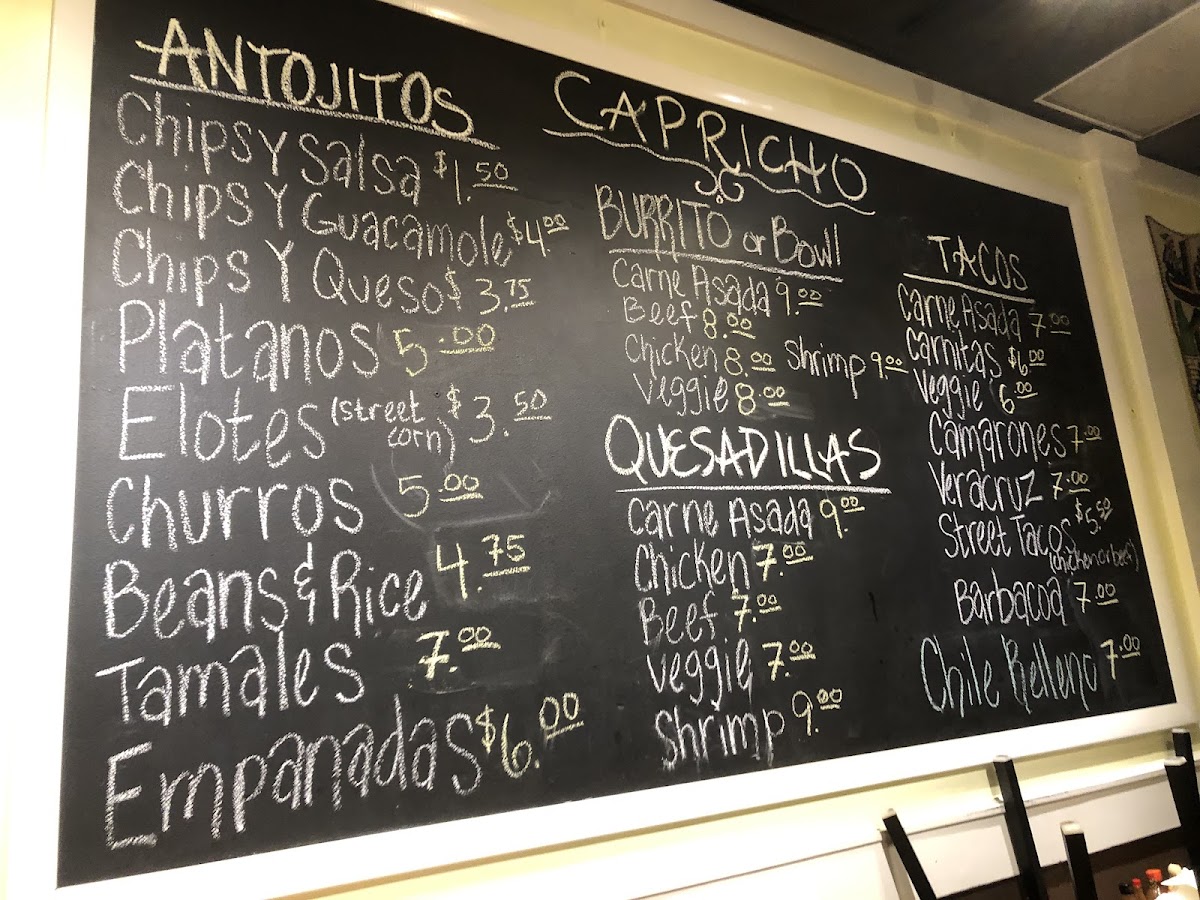 ANTOJITOS
Chips y Salsa $1.50
Chips y Guacamole $4.00
Chips y Queso $3.75
Platanos 5.00
Elotes (street corn) $3.50
Churros 5.00
Beans & Rice 4.75
Tamales 7.00
Empanadas $6.00
CAPRICHO
BURRITO or Bowl
Carne Asada 9.00
Beef 8.00
Chicken 8.00 Shrimp 9.00
Veggie 8.00
QUESADILLAS
Carne Asada 9.00
Chicken 7.00
Beef 7.00
Veggie 7.00
Shrimp 9.00
TACOS
Carne Asada 7.00
Carnitas $6.00
Veggie 6.00
Camarones 7.00
Veracruz 7.00
Street Tacos $5.50
(chicken or beef)
Barbacoa 7.00
Chile Relleno 7.00